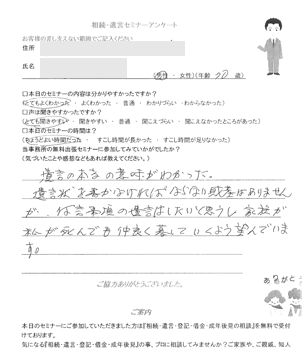 相続・遺言セミナーアンケート
お客様の差し支えない範囲でご記入ください
住所
氏名
(男性 ・ 女性) (年齢 70 歳)
□本日のセミナーの内容は分かりやすかったですか?
とてもよくわかった ・ よくわかった ・ 普通 ・ わかりづらい ・わからなかった
□声は聞きやすかったですか?
とても聞きやすい ・ 聞きやすい ・ 普通 ・ 聞こえづらい ・ 聞こえなかったところがあった
□本日のセミナーの時間は?
ちょうどよい時間だった ・ すこし時間が長かった ・ すこし時間が足りなかった
当事務所の無料出張セミナーに参加してみていかがでしたか?
(気づいたことや感想などもあれば教えてください。)
遺言の本当の意味がわかった。
遺言状を書かなければならない財産はありません
が、付言事項の遺言はしたいと思うし家族が
私が死んでも仲良く暮していくよう望んでいま
す。
ありがと
ご協力ありがとうございました。
ご案内
本日のセミナーにご参加していただきました方は『相続・遺言・登記・借金・成年後見の相談』を無料で受付
けております。
気になる『相続・遺言・登記・借金・成年後見』の事、プロに相談してみませんか?ご家族や、ご親戚、知人